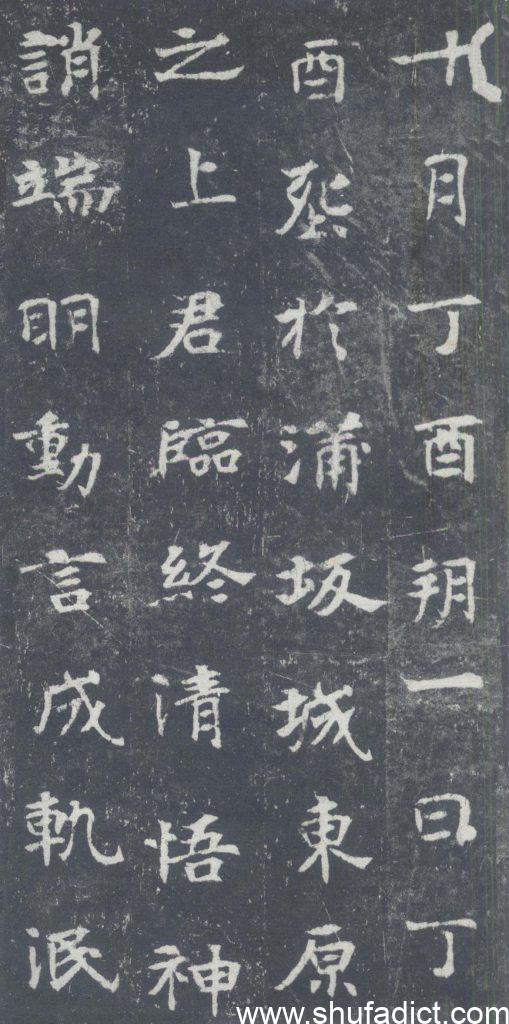 十月丁酉朔一日丁
酉葬於蒲坂城東原
之上君臨終清悟神
誚端明動言成軌泯
www.shufadict.com